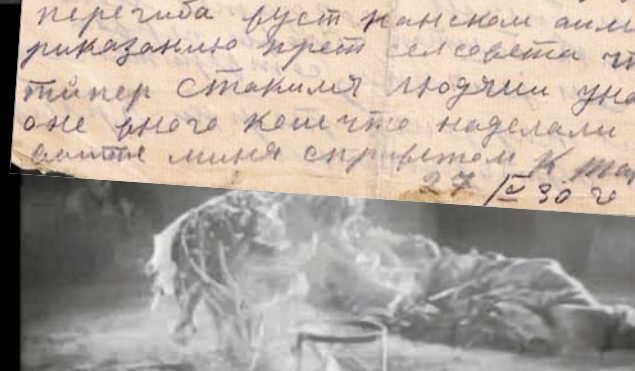 перегиба вуст канском аим
риказанию прет селсовета чт
типер стакими людчии уна
оне вного коешчто наделали
миня спрветом К
27 IV 30 г